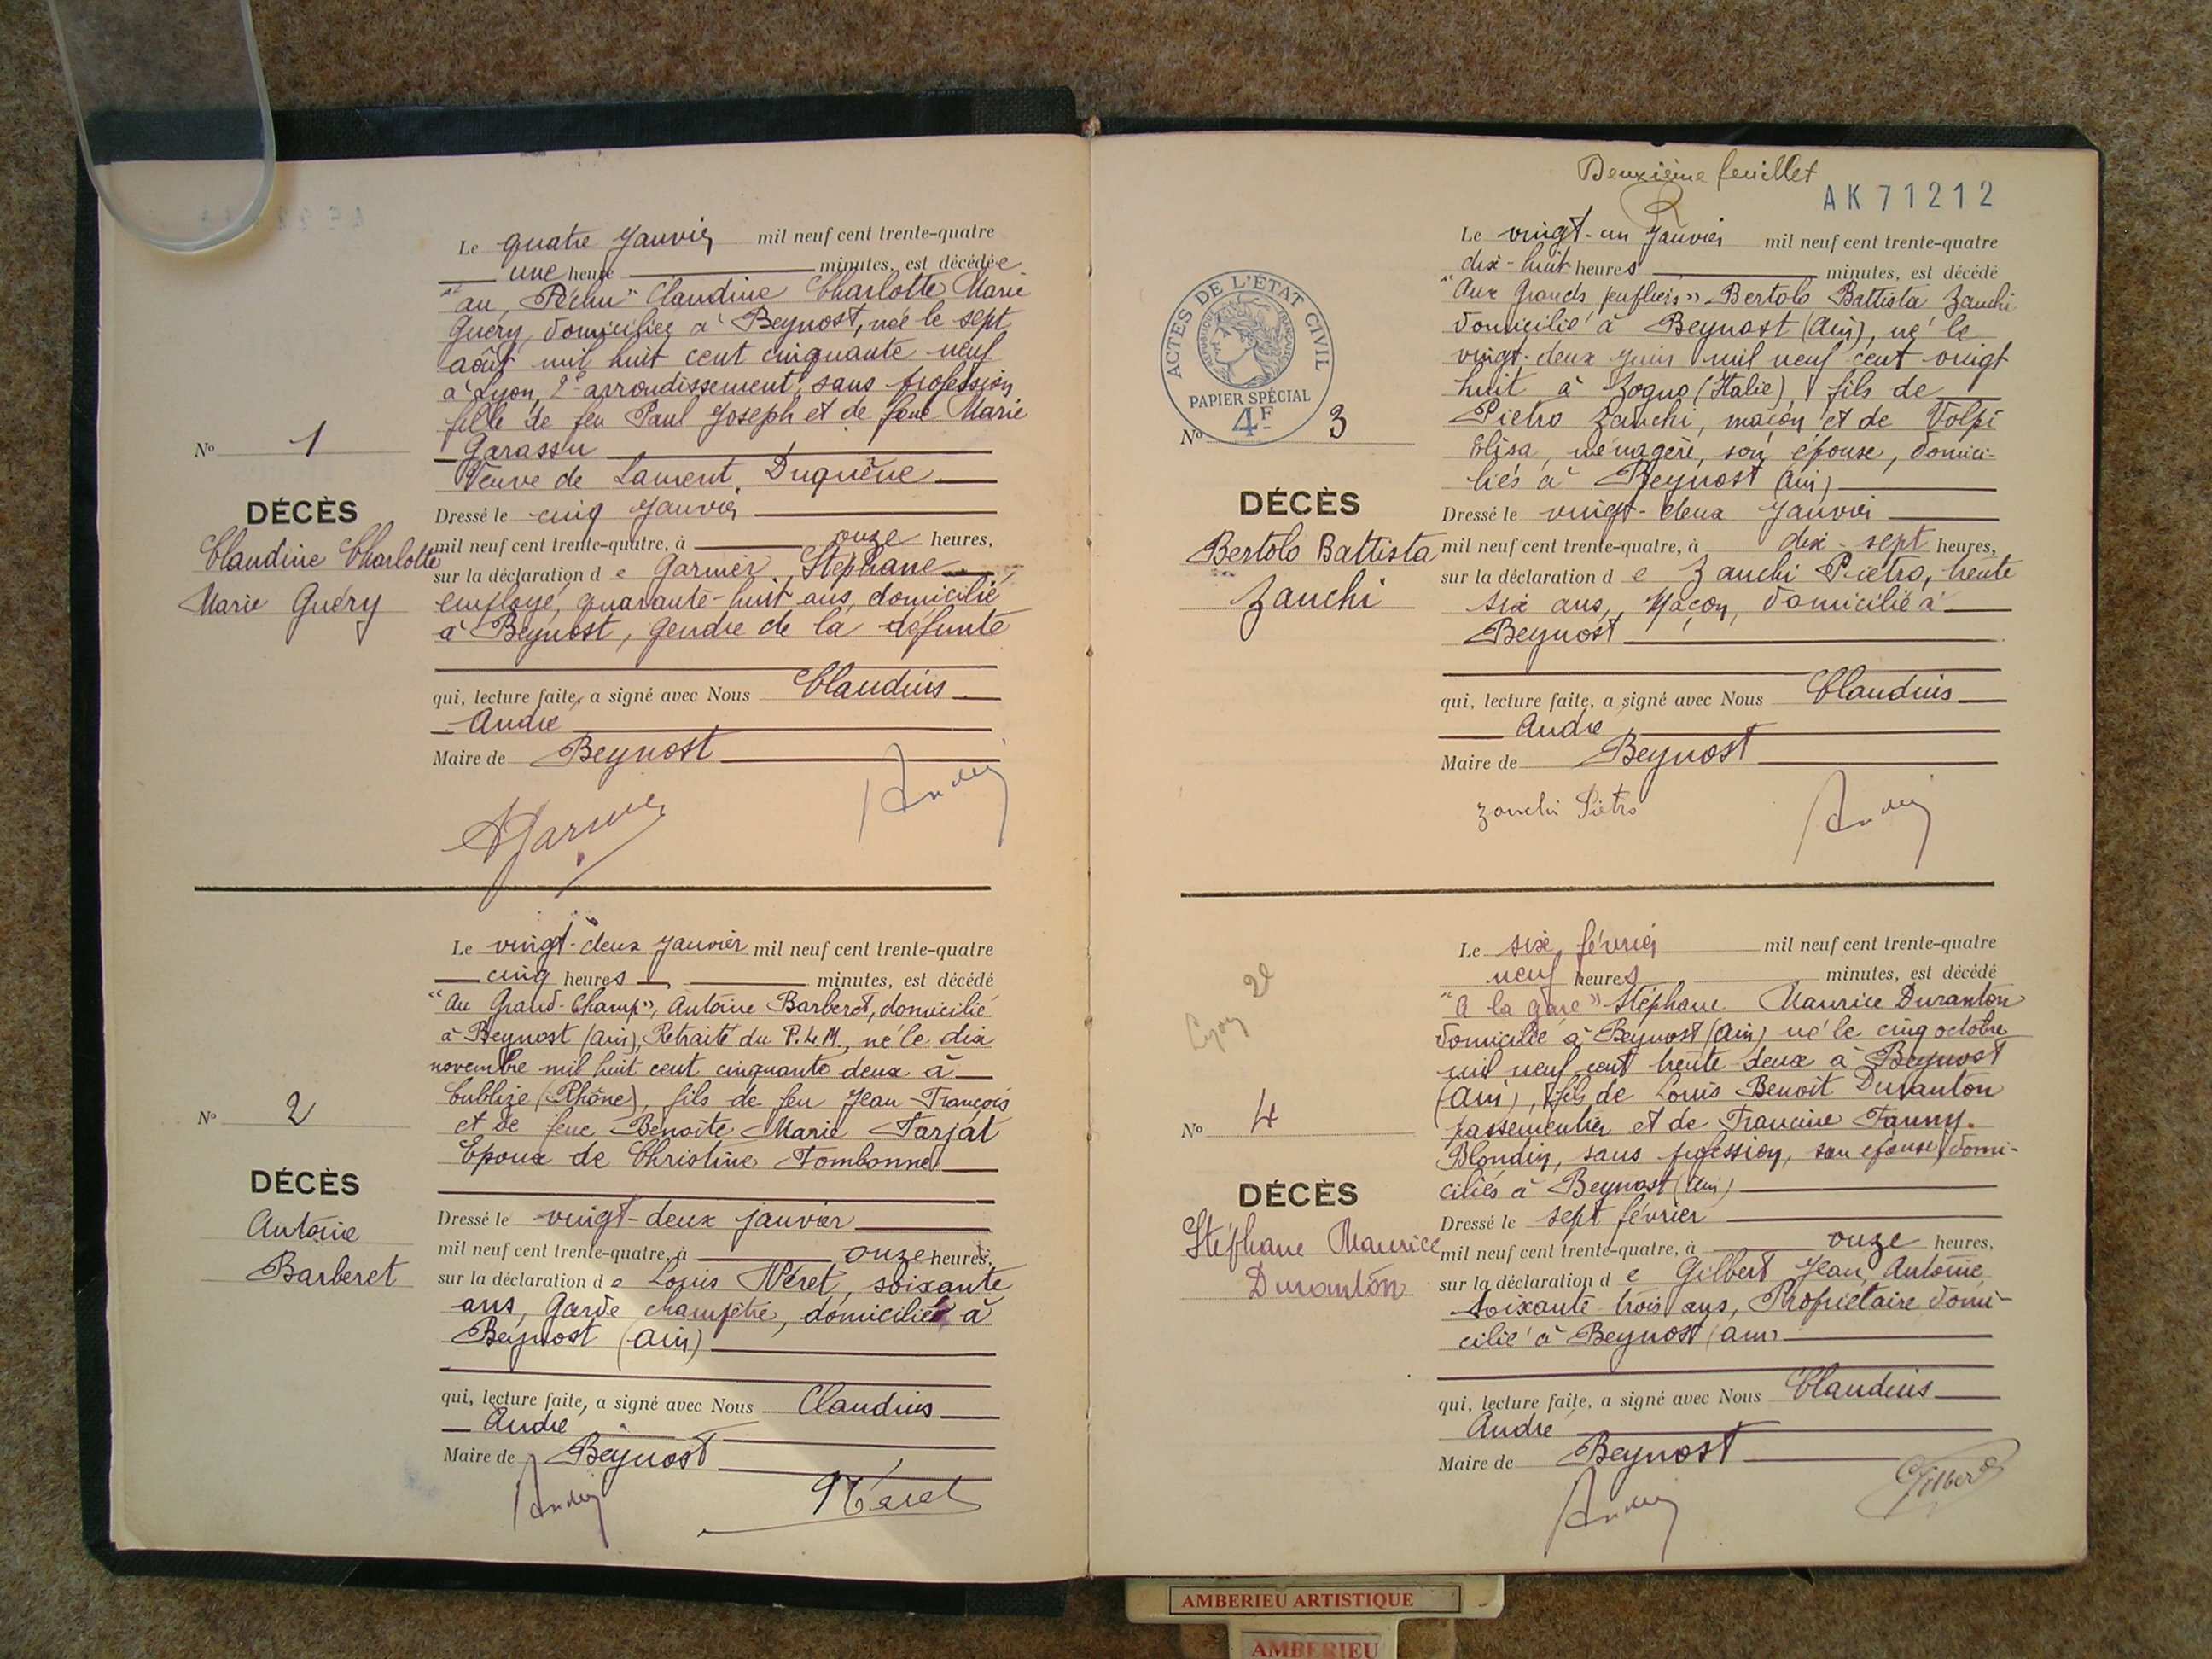 Le quatre Janvier mil neuf cent trente-quatre
une heure minutes, est décédée
"au Péchu" Claudine Charlotte Marie
Guéry, domiciliée à Beynost, née le sept
août mil huit cent cinquante neuf
à Lyon, 2e arrondissement, sans profession
fille de feu Paul Joseph et de feue Marie
Garassu
Veuve de Laurent Duquène
Dressé le cinq Janvier
mil neuf cent trente-quatre, à onze heures,
sur la déclaration de Garnier Stéphane
employé, quarante-huit ans, domicilié
à Beynost, gendre de la défunte
qui, lecture faite, a signé avec Nous Claudius
André
Maire de Beynost
No 1
DÉCÈS
Claudine Charlotte
Marie Guéry
Le vingt-deux Janvier mil neuf cent trente-quatre
cinq heures minutes, est décédé
"Au Grand-Champ", Antoine Barberet, domicilié
à Beynost (Ain), Retraité du P.L.M., né le dix
novembre mil huit cent cinquante deux à
Cublize (Rhône), fils de feu Jean François
et de feue Benoîte Marie Farjat
Epoux de Christine Fombonne
Dressé le vingt-deux janvier
mil neuf cent trente-quatre, à onze heures,
sur la déclaration de Louis Néret, soixante
ans, Garde champêtre, domicilié à
Beynost (Ain)
qui, lecture faite, a signé avec Nous Claudius
André
Maire de Beynost
No 2
DÉCÈS
Antoine
Barberet
Deuxième feuillet
AK71212
Le vingt-un Janvier mil neuf cent trente-quatre
dix-huit heures minutes, est décédé
"Aux Grands peupliers" Bertolo Battista Zanchi
domicilié à Beynost (Ain), né le
vingt-deux juin mil neuf cent vingt
huit à Zogno (Italie), fils de
Pietro Zanchi, maçon et de Volpi
Elisa, ménagère, son épouse, domici-
liés à Beynost (Ain)
Dressé le vingt-deux Janvier
mil neuf cent trente-quatre, à dix-sept heures,
sur la déclaration de Zanchi Pietro, trente
six ans, Maçon, domicilié à
Beynost
qui, lecture faite, a signé avec Nous Claudius
André
Maire de Beynost
Zanchi Pietro
ACTES DE L'ÉTAT CIVIL
RÉPUBLIQUE FRANÇAISE
PAPIER SPÉCIAL
4F
No 3
DÉCÈS
Bertolo Battista
Zanchi
Le six février mil neuf cent trente-quatre
neuf heures minutes, est décédé
"A la gare" Stéphane Maurice Duranton
domicilié à Beynost (Ain) né le cinq octobre
mil neuf cent trente-deux à Beynost
(Ain), fils de Louis Benoit Duranton
passementier et de Francine Fanny
Blondin, sans profession, son épouse, domi-
ciliés à Beynost (Ain)
Dressé le sept février
mil neuf cent trente-quatre, à onze heures,
sur la déclaration de Gilbert Jean Antoine
soixante-trois ans, Propriétaire, domi-
cilié à Beynost (Ain)
qui, lecture faite, a signé avec Nous Claudius
André
Maire de Beynost
Gilbert
Lyon 2e
No 4
DÉCÈS
Stéphane Maurice
Duranton
AMBERIEU ARTISTIQUE
AMBERIEU